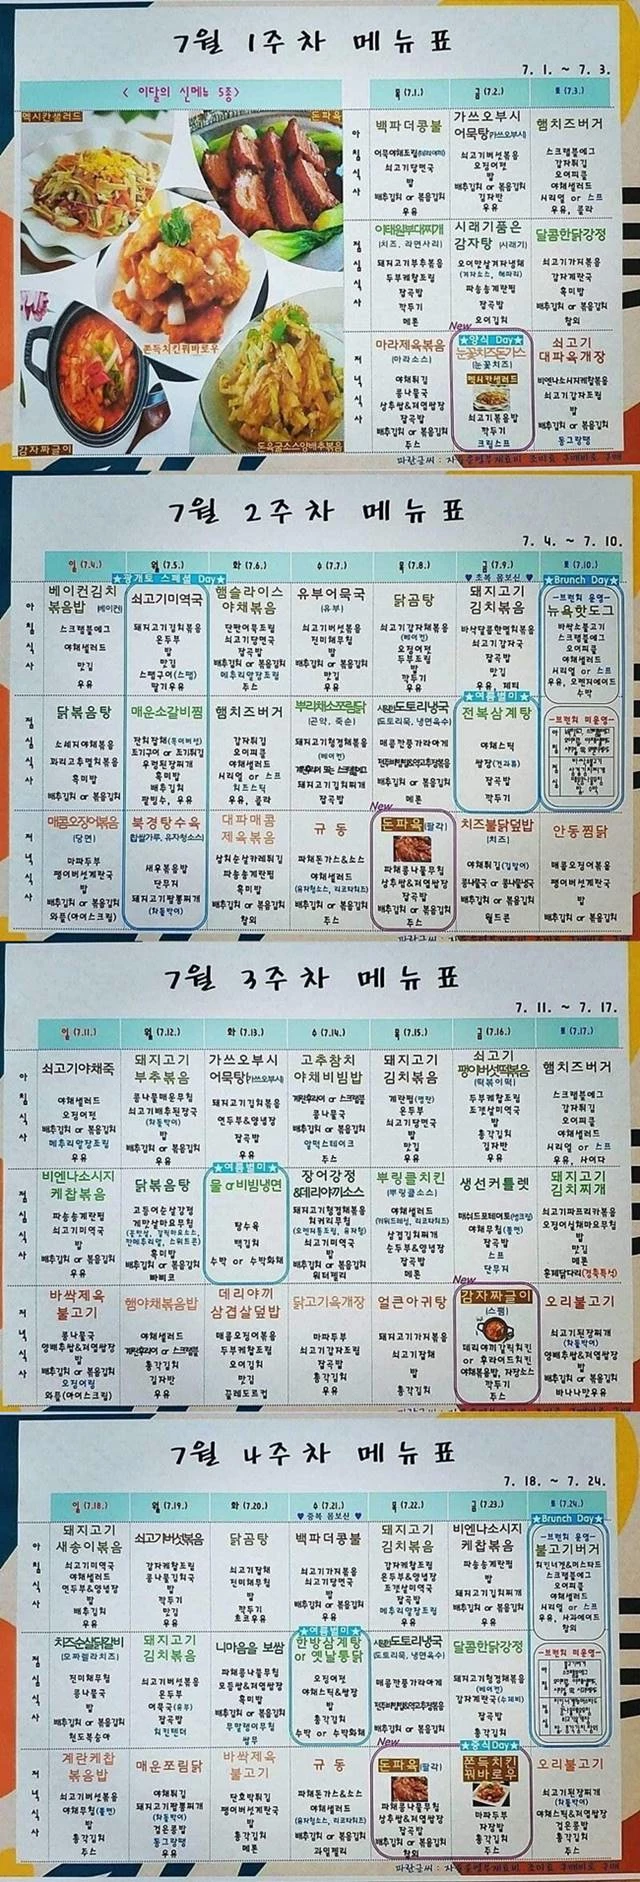 7월 1주차 메뉴표
7. 1. ~ 7. 3.
< 이달의 신메뉴 5종>
목 (7.1.)
금 (7.2.)
토 (7.3.)
멕시칸샐러드
돈파육
쫀득치킨꿔바로우
감자짜글이
돈육굴소스양배추볶음
아침식사
백파더콩불
어묵야채조림(데리야끼)
쇠고기당면국
밥
배추김치 or 볶음김치
우유
가쓰오부시
어묵탕(가쓰오부시)
쇠고기버섯볶음
오징어젓
밥
배추김치 or 볶음김치
김자반
우유
햄치즈버거
스크램블에그
감자튀김
오이피클
야채샐러드
시리얼 or 스프
우유, 콜라
점심식사
이태원부대찌개
(치즈, 라면사리)
돼지고기부추볶음
두부케찹조림
잡곡밥
깍두기
메론
시래기품은
감자탕 (시래기)
오이맛살겨자냉채
(겨자소스, 해파리)
파송송계란찜
잡곡밥
오이김치
달콤한닭강정
쇠고기가지볶음
감자계란국
흑미밥
배추김치 or 볶음김치
참외
저녁식사
마라제육볶음
(마라소스)
야채튀김
콩나물국
상추쌈&저염쌈장
잡곡밥
배추김치 or 볶음김치
주스
New
★양식 Day★
눈꽃치즈돈가스
(눈꽃치즈)
멕시칸샐러드
쇠고기볶음밥
깍두기
크림스프
쇠고기
대파육개장
비엔나소시지케찹볶음
쇠고기감자조림
밥
배추김치 or 볶음김치
동그랑땡
7월 2주차 메뉴표
7. 4. ~ 7. 10.
일 (7.4.)
월 (7.5.)
화 (7.6.)
수 (7.7.)
목 (7.8.)
금 (7.9.)
토 (7.10.)
★광개토 스페셜 Day★
♥ 초복 몸보신 ♥
★Brunch Day★
아침식사
베이컨김치
볶음밥 (베이컨)
스크램블에그
야채샐러드
맛김
우유
쇠고기미역국
돼지고기김치볶음
온두부
밥
맛김
스팸구이(스팸)
딸기우유
햄슬라이스
야채볶음
단짠어묵조림
쇠고기당면국
잡곡밥
배추김치 or 볶음김치
메추리알장조림
주스
유부어묵국
(유부)
쇠고기버섯볶음
진미채무침
밥
배추김치 or 볶음김치
우유
닭곰탕
쇠고기감자채볶음
(베이컨)
오징어젓
두부조림
밥
깍두기
우유
돼지고기
김치볶음
바삭달콤한멸치볶음
쇠고기감자국
잡곡밥
맛김
우유, 제티
-브런치 운영-
뉴욕핫도그
바싹소불고기
스크램블에그
오이피클
야채샐러드
시리얼 or 스프
우유, 오렌지에이드
수박
점심식사
닭볶음탕
소세지야채볶음
꽈리고추멸치볶음
흑미밥
배추김치 or 볶음김치
매운소갈비찜
조기구이 or 조기튀김
우렁된장찌개
흑미밥
배추김치
팥빙수, 우유
햄치즈버거
감자튀김
오이피클
야채샐러드
시리얼 or 스프
치즈스틱
우유, 콜라
뿌리채소쪼림닭
(곤약, 죽순)
돼지고기청경채볶음
(베이컨)
돼지고기김치찌개
잡곡밥
시원한도토리냉국
(도토리묵, 냉면육수)
매콤깐풍가라아게
배추김치 or 볶음김치
메론
★여름별미★
전복삼계탕
야채스틱
쌈장(견과류)
잡곡밥
깍두기
-브런치 미운영-
저녁식사
매콤오징어볶음
(당면)
마파두부
팽이버섯계란국
밥
배추김치 or 볶음김치
와플(아이스크림)
북경탕수육
(찹쌀가루, 유자청소스)
새우볶음밥
단무지
돼지고기짬뽕찌개
(차돌박이)
대파매콤
제육볶음
상치순살카레튀김
파송송계란찜
흑미밥
배추김치 or 볶음김치
참외
규동
파채돈가스&소스
야채샐러드
(유자청소스, 리코타치즈)
배추김치 or 볶음김치
주스
New
돈파육(팔각)
파채콩나물무침
상추쌈&저염쌈장
잡곡밥
배추김치 or 볶음김치
주스
치즈불닭덮밥
(치즈)
야채튀김(김말이)
콩나물국 or 콩나물냉국
배추김치 or 볶음김치
월드콘
안동찜닭
매콤오징어볶음
팽이버섯계란국
밥
배추김치 or 볶음김치
7월 3주차 메뉴표
7. 11. ~ 7. 17.
일 (7.11.)
월 (7.12.)
화 (7.13.)
수 (7.14.)
목 (7.15.)
금 (7.16.)
토 (7.17.)
아침식사
쇠고기야채죽
야채샐러드
오징어젓
배추김치 or 볶음김치
메추리알장조림
우유
돼지고기
부추볶음
콩나물매운무침
쇠고기배추된장국
(차돌박이)
밥
배추김치 or 볶음김치
우유
가쓰오부시
어묵탕(가쓰오부시)
돼지고기김치볶음
연두부&양념장
잡곡밥
우유
고추참치
야채비빔밥
계란후라이 or 스크램블
콩나물국
배추김치 or 볶음김치
알떡스테이크
주스
돼지고기
김치볶음
계란찜(명란)
온두부
쇠고기당면국
밥
맛김
우유
쇠고기
팽이버섯떡볶음
(떡볶이떡)
두부케찹조림
조갯살미역국
밥
총각김치
김자반
우유
햄치즈버거
스크램블에그
감자튀김
오이피클
야채샐러드
시리얼 or 스프
우유, 사이다
점심식사
비엔나소시지
케찹볶음
파송송계란찜
쇠고기미역국
밥
배추김치 or 볶음김치
우유
닭볶음탕
고등어순살강정
게맛살마요무침
흑미밥
배추김치 or 볶음김치
빠삐코
★여름별미★
물 or 비빔냉면
탕수육
백김치
수박 or 수박화채
장어강정
&데리야끼소스
돼지고기청경채볶음
치커리무침
(오렌지드레싱, 유자청)
쇠고기미역국
밥
배추김치 or 볶음김치
워터젤리
뿌링클치킨
(뿌링클소스)
야채샐러드
삼겹김치찌개
순두부&양념장
잡곡밥
메론
생선커틀렛
매쉬드포테이토(생크림)
야채무침(쫄면)
잡곡밥
스프
단무지
돼지고기
김치찌개
쇠고기파프리카볶음
오징어실채마요무침
밥
맛김
메론
훈제닭다리(경축특식)
저녁식사
바싹제육
불고기
콩나물국
양배추쌈&저염쌈장
밥
배추김치 or 볶음김치
오징어링
와플(아이스크림)
햄야채볶음밥
야채샐러드
계란후라이 or 스크램블
총각김치
김자반
우유
데리야끼
삼겹살덮밥
매콤오징어볶음
두부케찹조림
오이김치
맛김
끌레도르컵
닭고기육개장
마파두부
쇠고기감자조림
잡곡밥
총각김치
우유
얼큰아귀탕
돼지고기가지볶음
쇠고기잡채
밥
총각김치
New
감자짜글이
(스팸)
데리야끼갈릭치킨
or 후라이드치킨
야채볶음밥, 자장소스
깍두기
주스
오리불고기
쇠고기된장찌개
(차돌박이)
양배추쌈&저염쌈장
밥
배추김치 or 볶음김치
바나나맛우유
7월 4주차 메뉴표
7. 18. ~ 7. 24.
일 (7.18.)
월 (7.19.)
화 (7.20.)
수 (7.21.)
목 (7.22.)
금 (7.23.)
토 (7.24.)
♥ 중복 몸보신 ♥
★Brunch Day★
아침식사
돼지고기
새송이볶음
쇠고기미역국
야채샐러드
연두부&양념장
밥
배추김치
우유
쇠고기버섯볶음
감자케찹조림
콩나물김치국
밥
깍두기
맛김
우유
닭곰탕
쇠고기잡채
진미채무침
밥
깍두기
초코우유
백파더콩불
쇠고기가지볶음
쇠고기당면국
밥
배추김치 or 볶음김치
우유
돼지고기
김치볶음
감자케찹조림
온두부&양념장
조갯살미역국
잡곡밥
메추리알장조림
우유
비엔나소시지
케찹볶음
파송송계란찜
밥
돼지고기김치찌개
배추김치 or 볶음김치
우유
-브런치 운영-
불고기버거
치킨너겟&머스타드
스크램블에그
오이피클
야채샐러드
시리얼 or 스프
우유, 사과에이드
참외
점심식사
치즈순살닭갈비
(모짜렐라치즈)
진미채무침
콩나물국
밥
배추김치 or 볶음김치
천도복숭아
돼지고기
김치볶음
쇠고기버섯볶음
온두부
어묵국(유부)
잡곡밥
치킨텐더
니마음을 보쌈
파채콩나물무침
모듬쌈&저염쌈장
흑미밥
배추김치 or 볶음김치
무말랭이무침
쌈무
★여름별미★
한방삼계탕
or 옛날통닭
오징어젓
야채스틱&쌈장
밥
총각김치
수박 or 수박화채
시원한도토리냉국
(도토리묵, 냉면육수)
매콤깐풍가라아게
배추김치 or 볶음김치
메론
달콤한닭강정
돼지고기청경채볶음
(베이컨)
감자계란국(수제비)
잡곡밥
총각김치
-브런치 미운영-
저녁식사
계란케찹
볶음밥
쇠고기버섯볶음
야채무침(쫄면)
배추김치 or 볶음김치
우유
매운쪼림닭
야채튀김
돼지고기짬뽕찌개
(차돌박이)
검은콩밥
동그랑땡
우유
바싹제육
불고기
단호박튀김
팽이버섯계란국
밥
총각김치
메론
규동
파채돈가스&소스
야채샐러드
(유자청소스, 리코타치즈)
배추김치 or 볶음김치
과일젤리
New
돈파육(팔각)
파채콩나물무침
상추쌈&저염쌈장
잡곡밥
배추김치 or 볶음김치
참외
★중식Day★
쫀득치킨
꿔바로우
마파두부
자장밥
총각김치
주스
오리불고기
쇠고기된장찌개
(차돌박이)
야채스틱&저염쌈장
밥
총각김치
우유